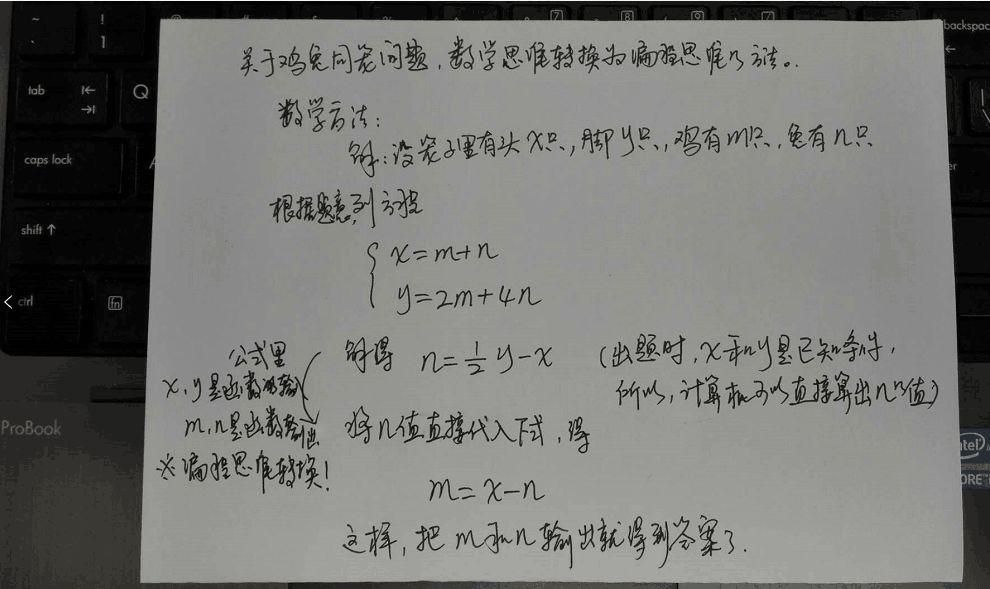 关于鸡兔同笼问题,数学思维转换为编程思维的方法。
数学方法:
解:设笼子里有头x只,脚y只,鸡有m只,兔有n只
根据题意,列方程
x=m+n
y=2m+4n
解得 n=1/2 y-x (出题时,x和y是已知条件,
所以,计算机可以直接算出n的值)
公式里
x,y是函数的输入
m,n是函数输出
※编程思维转换!
将n值直接代入下式,得
m=x-n
这样,把m和n输出就得到答案了.
tab
Q
caps lock
A
shift
ctrl
fn
ProBook
backspac
intel